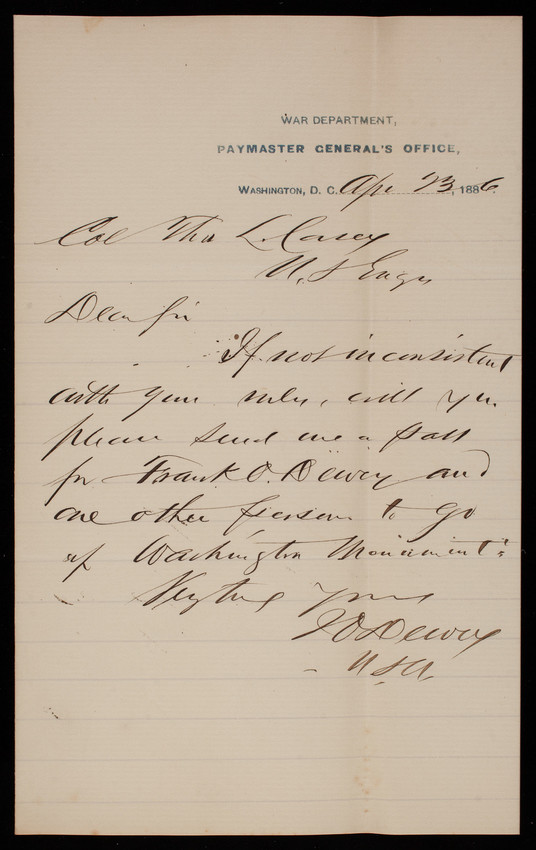 WAR DEPARTMENT,
PAYMASTER GENERAL'S OFFICE,
WASHINGTON, D. C. Apr 23, 1886.
Col Tho L. Casey
U. S Engrs
Dear Sir
If not inconsistent
with your rules, will you
please send me a pass
for Frank O. Dewey and
one other person to go
up Washington Monument.
Very truly yours
Dewey
U.S.A.